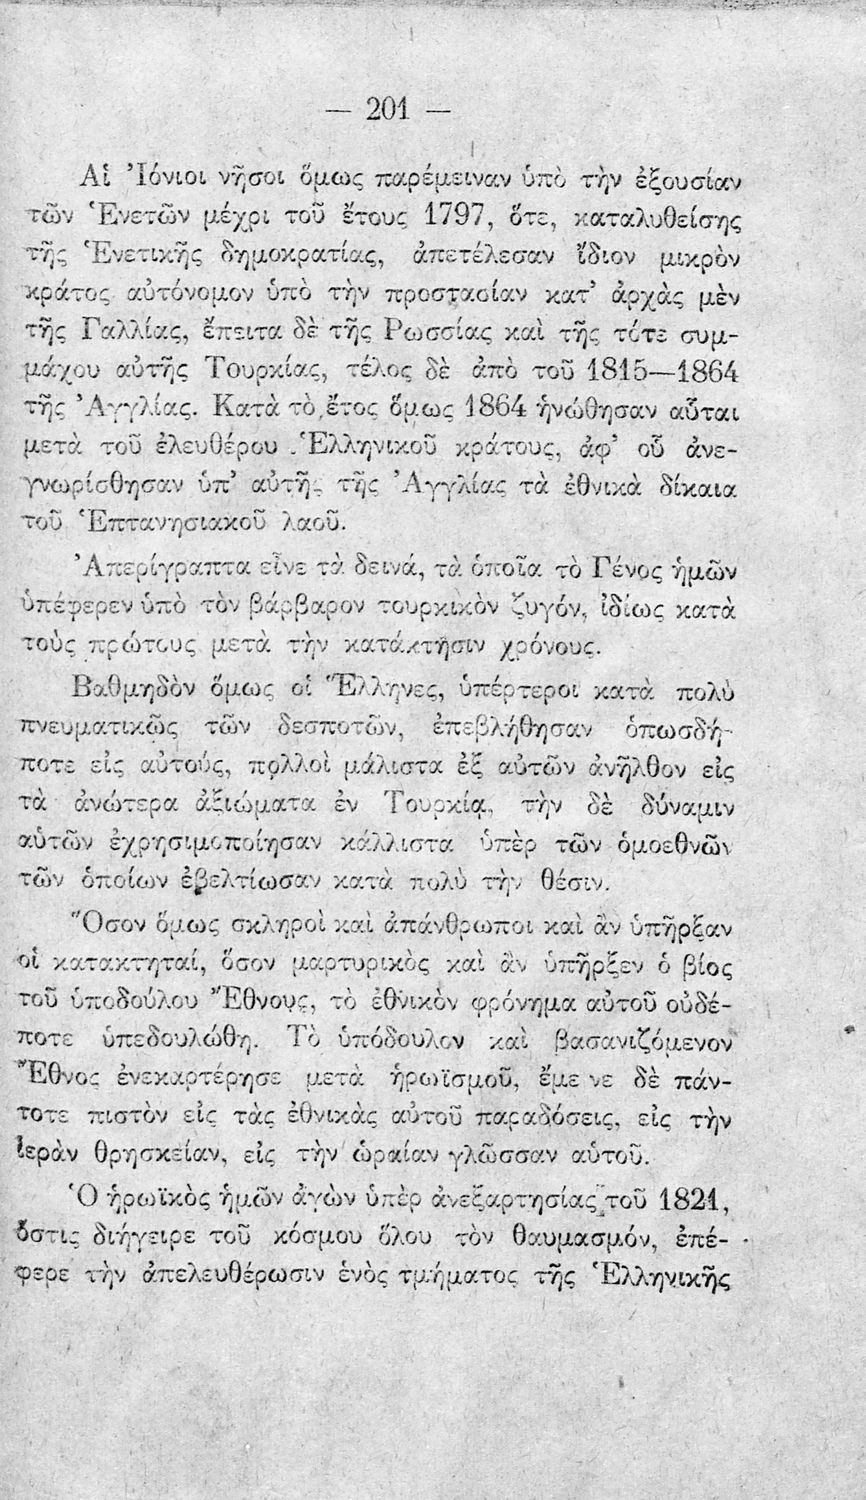 — 201 —
Αἱ Ἰόνιοι νῆσοι ὅμως παρέμειναν ὑπὸ τὴν ἐξουσίαν
τῶν Ἑνετῶν μέχρι τοῦ ἔτους 1797, ὅτε, καταλυθείσης
τῆς Ἑνετικῆς δημοκρατίας, ἀπετέλεσαν ἴδιον μικρὸν
κράτος αὐτόνομον ὑπὸ τὴν προστασίαν κατ’ ἀρχὰς μὲν
τῆς Γαλλίας, ἔπειτα δὲ τῆς Ρωσσίας καὶ τῆς τότε συμ-
μάχου αὐτῆς Τουρκίας, τέλος δὲ ἀπὸ τοῦ 1815—1864
τῆς Ἀγγλίας. Κατὰ τὸ ἔτος ὅμως 1864 ἡνώθησαν αὗται
μετὰ τοῦ ἐλευθέρου Ἑλληνικοῦ κράτους, ἀφ’ οὗ ἀνε-
γνωρίσθησαν ὑπ’ αὐτῆς τῆς Ἀγγλίας τὰ ἐθνικὰ δίκαια
τοῦ Ἑπτανησιακοῦ λαοῦ.
Ἀπερίγραπτα εἶνε τὰ δεινά, τὰ ὁποῖα τὸ Γένος ἡμῶν
ὑπέφερεν ὑπὸ τὸν βάρβαρον τουρκικὸν ζυγόν, ἰδίως κατὰ
τοὺς πρώτους μετὰ τὴν κατάκτησιν χρόνους.
Βαθμηδὸν ὅμως οἱ Ἕλληνες, ὑπέρτεροι κατὰ πολὺ
πνευματικῶς τῶν δεσποτῶν, ἐπεβλήθησαν ὁπωσδή-
ποτε εἰς αὐτούς, πολλοὶ μάλιστα ἐξ αὐτῶν ἀνῆλθον εἰς
τὰ ἀνώτερα ἀξιώματα ἐν Τουρκίᾳ, τὴν δὲ δύναμιν
αὑτῶν ἐχρησιμοποίησαν κάλλιστα ὑπὲρ τῶν ὁμοεθνῶν
τῶν ὁποίων ἐβελτίωσαν κατὰ πολὺ τὴν θέσιν.
Ὅσον ὅμως σκληροὶ καὶ ἀπάνθρωποι καὶ ἂν ὑπῆρξαν
οἱ κατακτηταί, ὅσον μαρτυρικὸς καὶ ἂν ὑπῆρξεν ὁ βίος
τοῦ ὑποδούλου Ἔθνους, τὸ ἐθνικὸν φρόνημα αὐτοῦ οὐδέ-
ποτε ὑπεδουλώθη. Τὸ ὑπόδουλον καὶ βασανιζόμενον
Ἔθνος ἐνεκαρτέρησε μετὰ ἡρωϊσμοῦ, ἔμεινε δὲ πάν-
τοτε πιστὸν εἰς τὰς ἐθνικὰς αὑτοῦ παραδόσεις, εἰς τὴν
ἱερὰν θρησκείαν, εἰς τὴν ὡραίαν γλῶσσαν αὑτοῦ.
Ὁ ἡρωϊκὸς ἡμῶν ἀγὼν ὑπὲρ ἀνεξαρτησίας τοῦ 1821,
ὅστις διήγειρε τοῦ κόσμου ὅλου τὸν θαυμασμόν, ἐπέ-
φερε τὴν ἀπελευθέρωσιν ἑνὸς τμήματος τῆς Ἑλληνικῆς